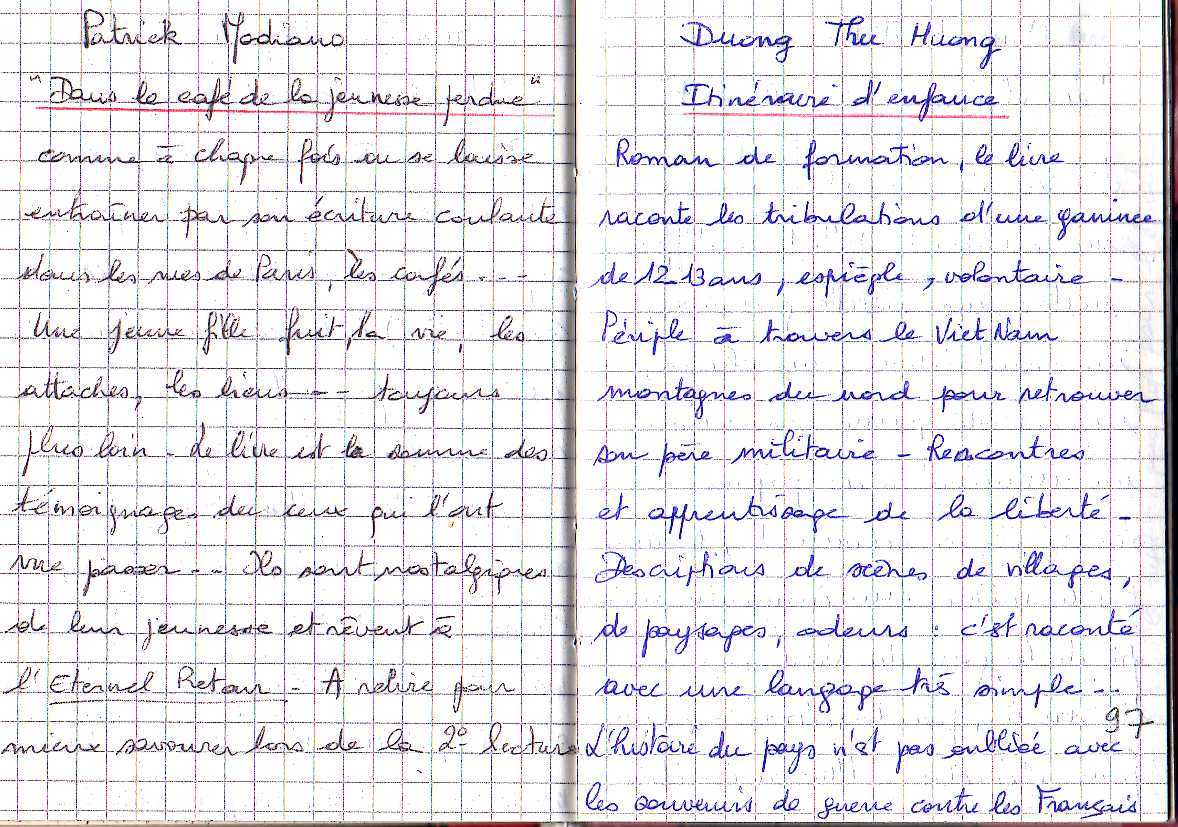 Patrick Modiano
"Dans le café de la jeunesse perdue"
comme à chaque fois on se laisse
entraîner par son écriture coulante
dans les rues de Paris, les cafés ---
Une jeune fille fuit, la vie, les
attaches, les liens --- toujours
plus loin - Le livre est la somme des
témoignages de ceux qui l'ont
vue passer -- Ils sont nostalgiques
de leur jeunesse et rêvent à
l'Eternel Retour - A relire pour
mieux savourer lors de la 2° lecture
Duong Thu Huong
Itinéraire d'enfance
Roman de formation, le livre
raconte les tribulations d'une gamine
de 12 13 ans, espiègle, volontaire -
Périple à travers le Viet Nam
montagnes du nord pour retrouver
son père militaire - Rencontres
et apprentissage de la liberté -
Descriptions de scènes de villages,
de paysages, odeurs : c'est raconté
avec une langage très simple --
97
L'histoire du pays n'est pas oubliée avec
les souvenirs de guerre contre les Français